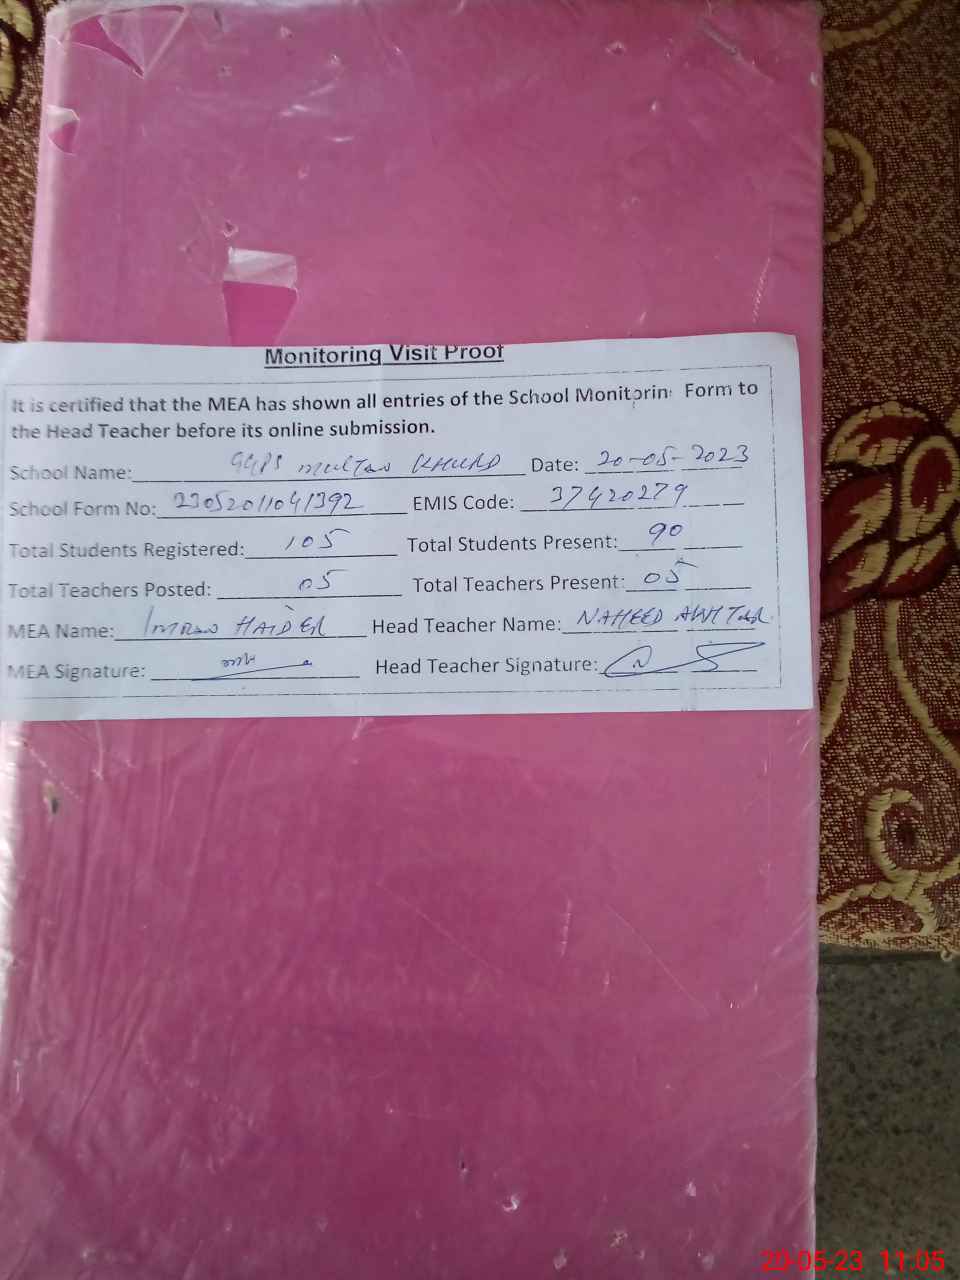 Monitoring Visit Proof
It is certified that the MEA has shown all entries of the School Monitorin Form to
the Head Teacher before its online submission.
School Name: GGPS MULTAN KHURD Date: 20-05-2023
School Form No: 23052011041392 EMIS Code: 37420279
Total Students Registered: 105 Total Students Present: 90
Total Teachers Posted: 05 Total Teachers Present: 05
MEA Name: IMRAN HAIDER Head Teacher Name: NAHEED AKHTAR
MEA Signature: Head Teacher Signature:
20-05-23 11:05